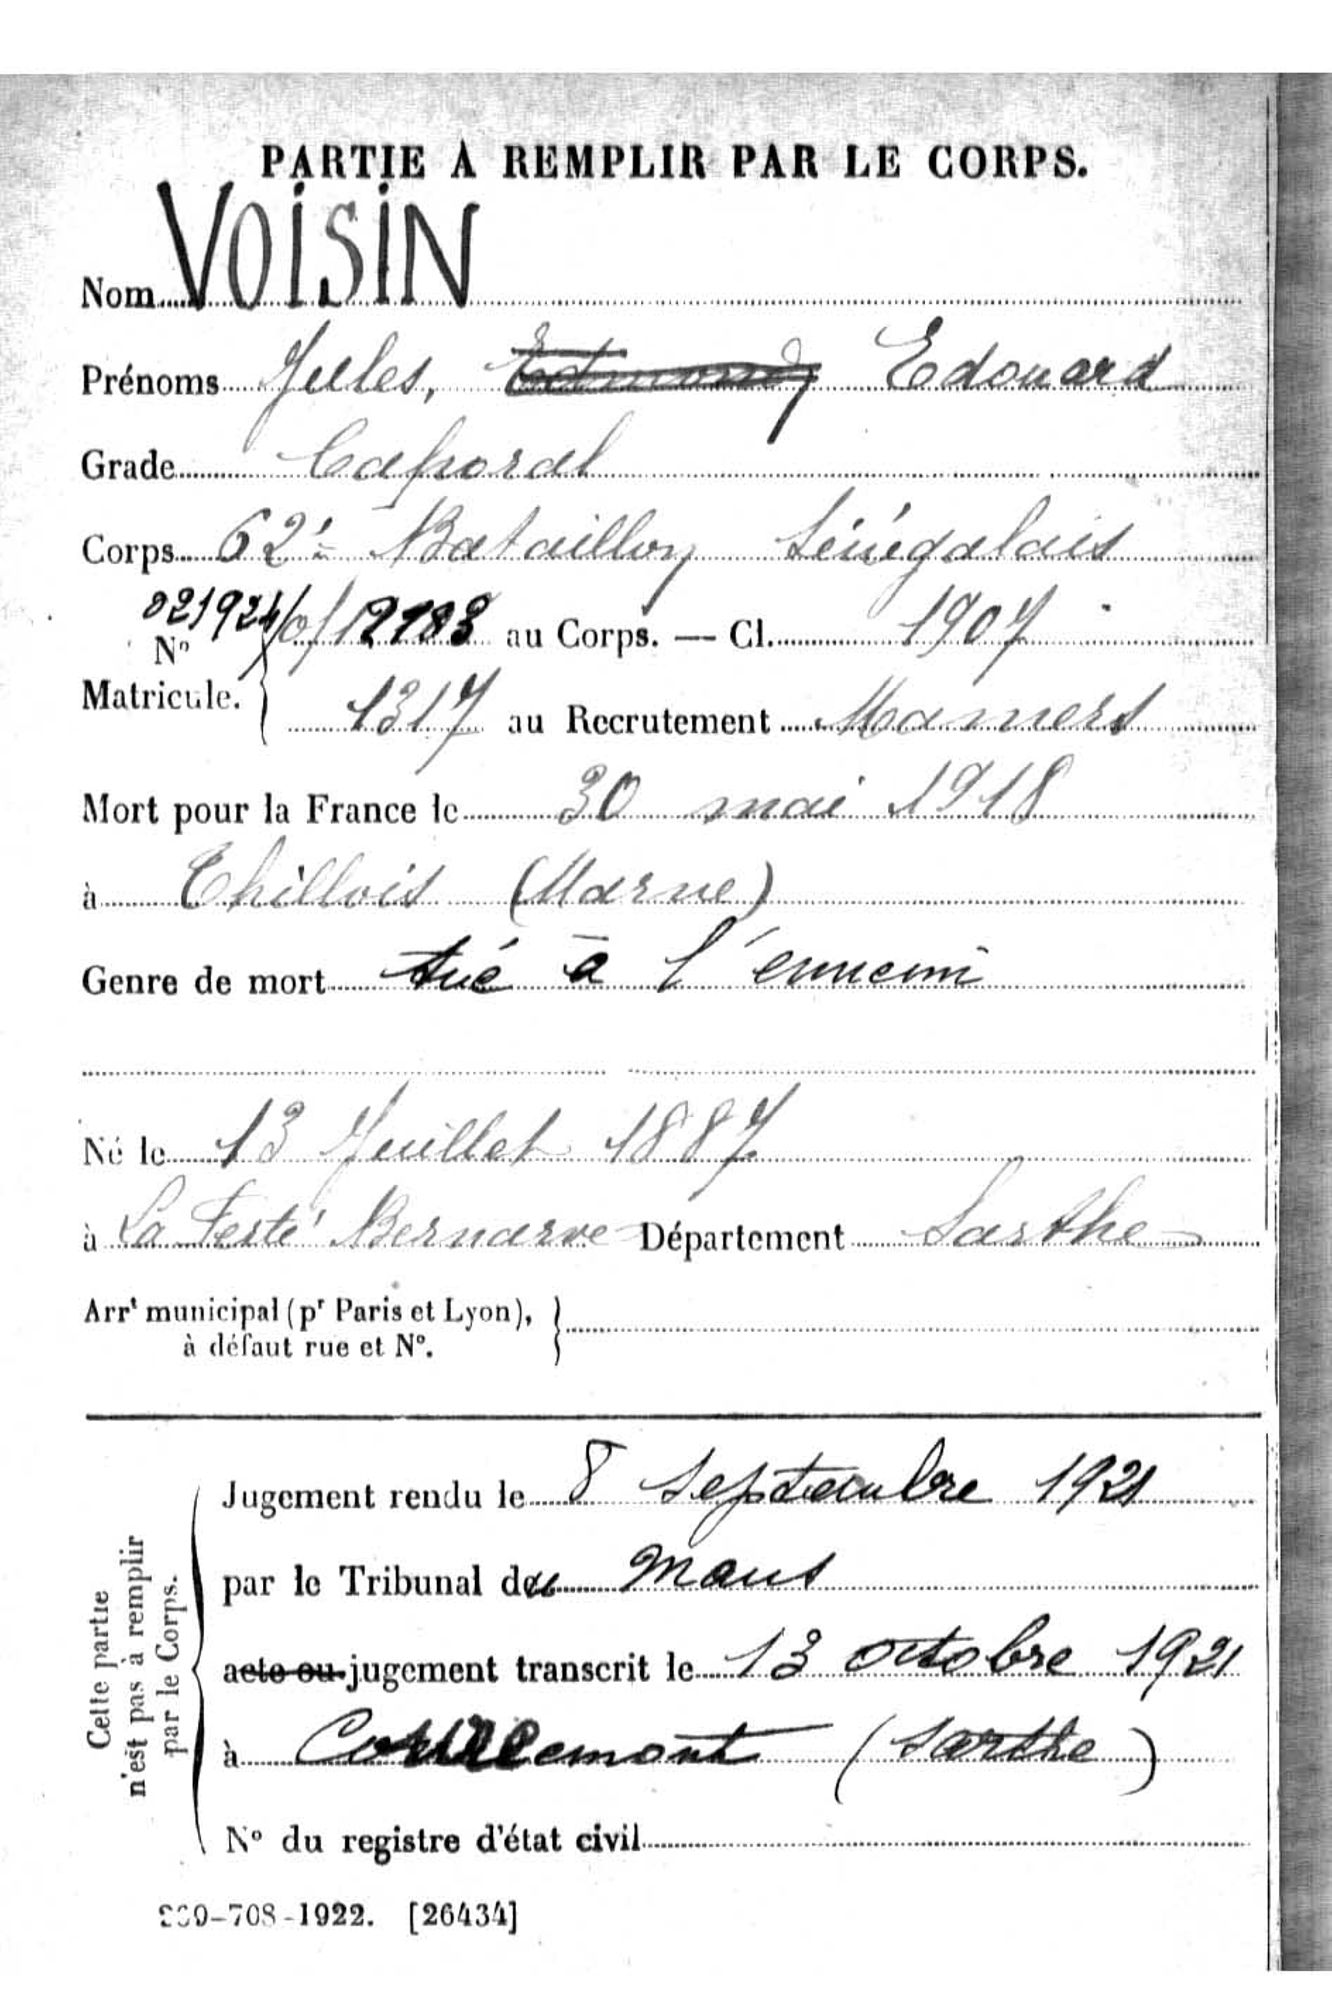 PARTIE À REMPLIR PAR LE CORPS.
Nom VOISIN
Prénoms Jules, Edouard
Grade Caporal
Corps 62e Bataillon Sénégalais
021924
No 12783 au Corps. — Cl. 1907
Matricule. 1317 au Recrutement Mamers
Mort pour la France le 30 mai 1918
à Thillois (Marne)
Genre de mort tué à l'ennemi
Né le 13 Juillet 1887
à La Ferté Bernard Département Sarthe
Arrt municipal (pr Paris et Lyon),
à défaut rue et No.
Cette partie
n'est pas à remplir
par le Corps.
Jugement rendu le 8 Septembre 1921
par le Tribunal du Mans
acte ou jugement transcrit le 13 octobre 1921
à (Sarthe)
No du registre d'état civil
-708-1922. [26434]